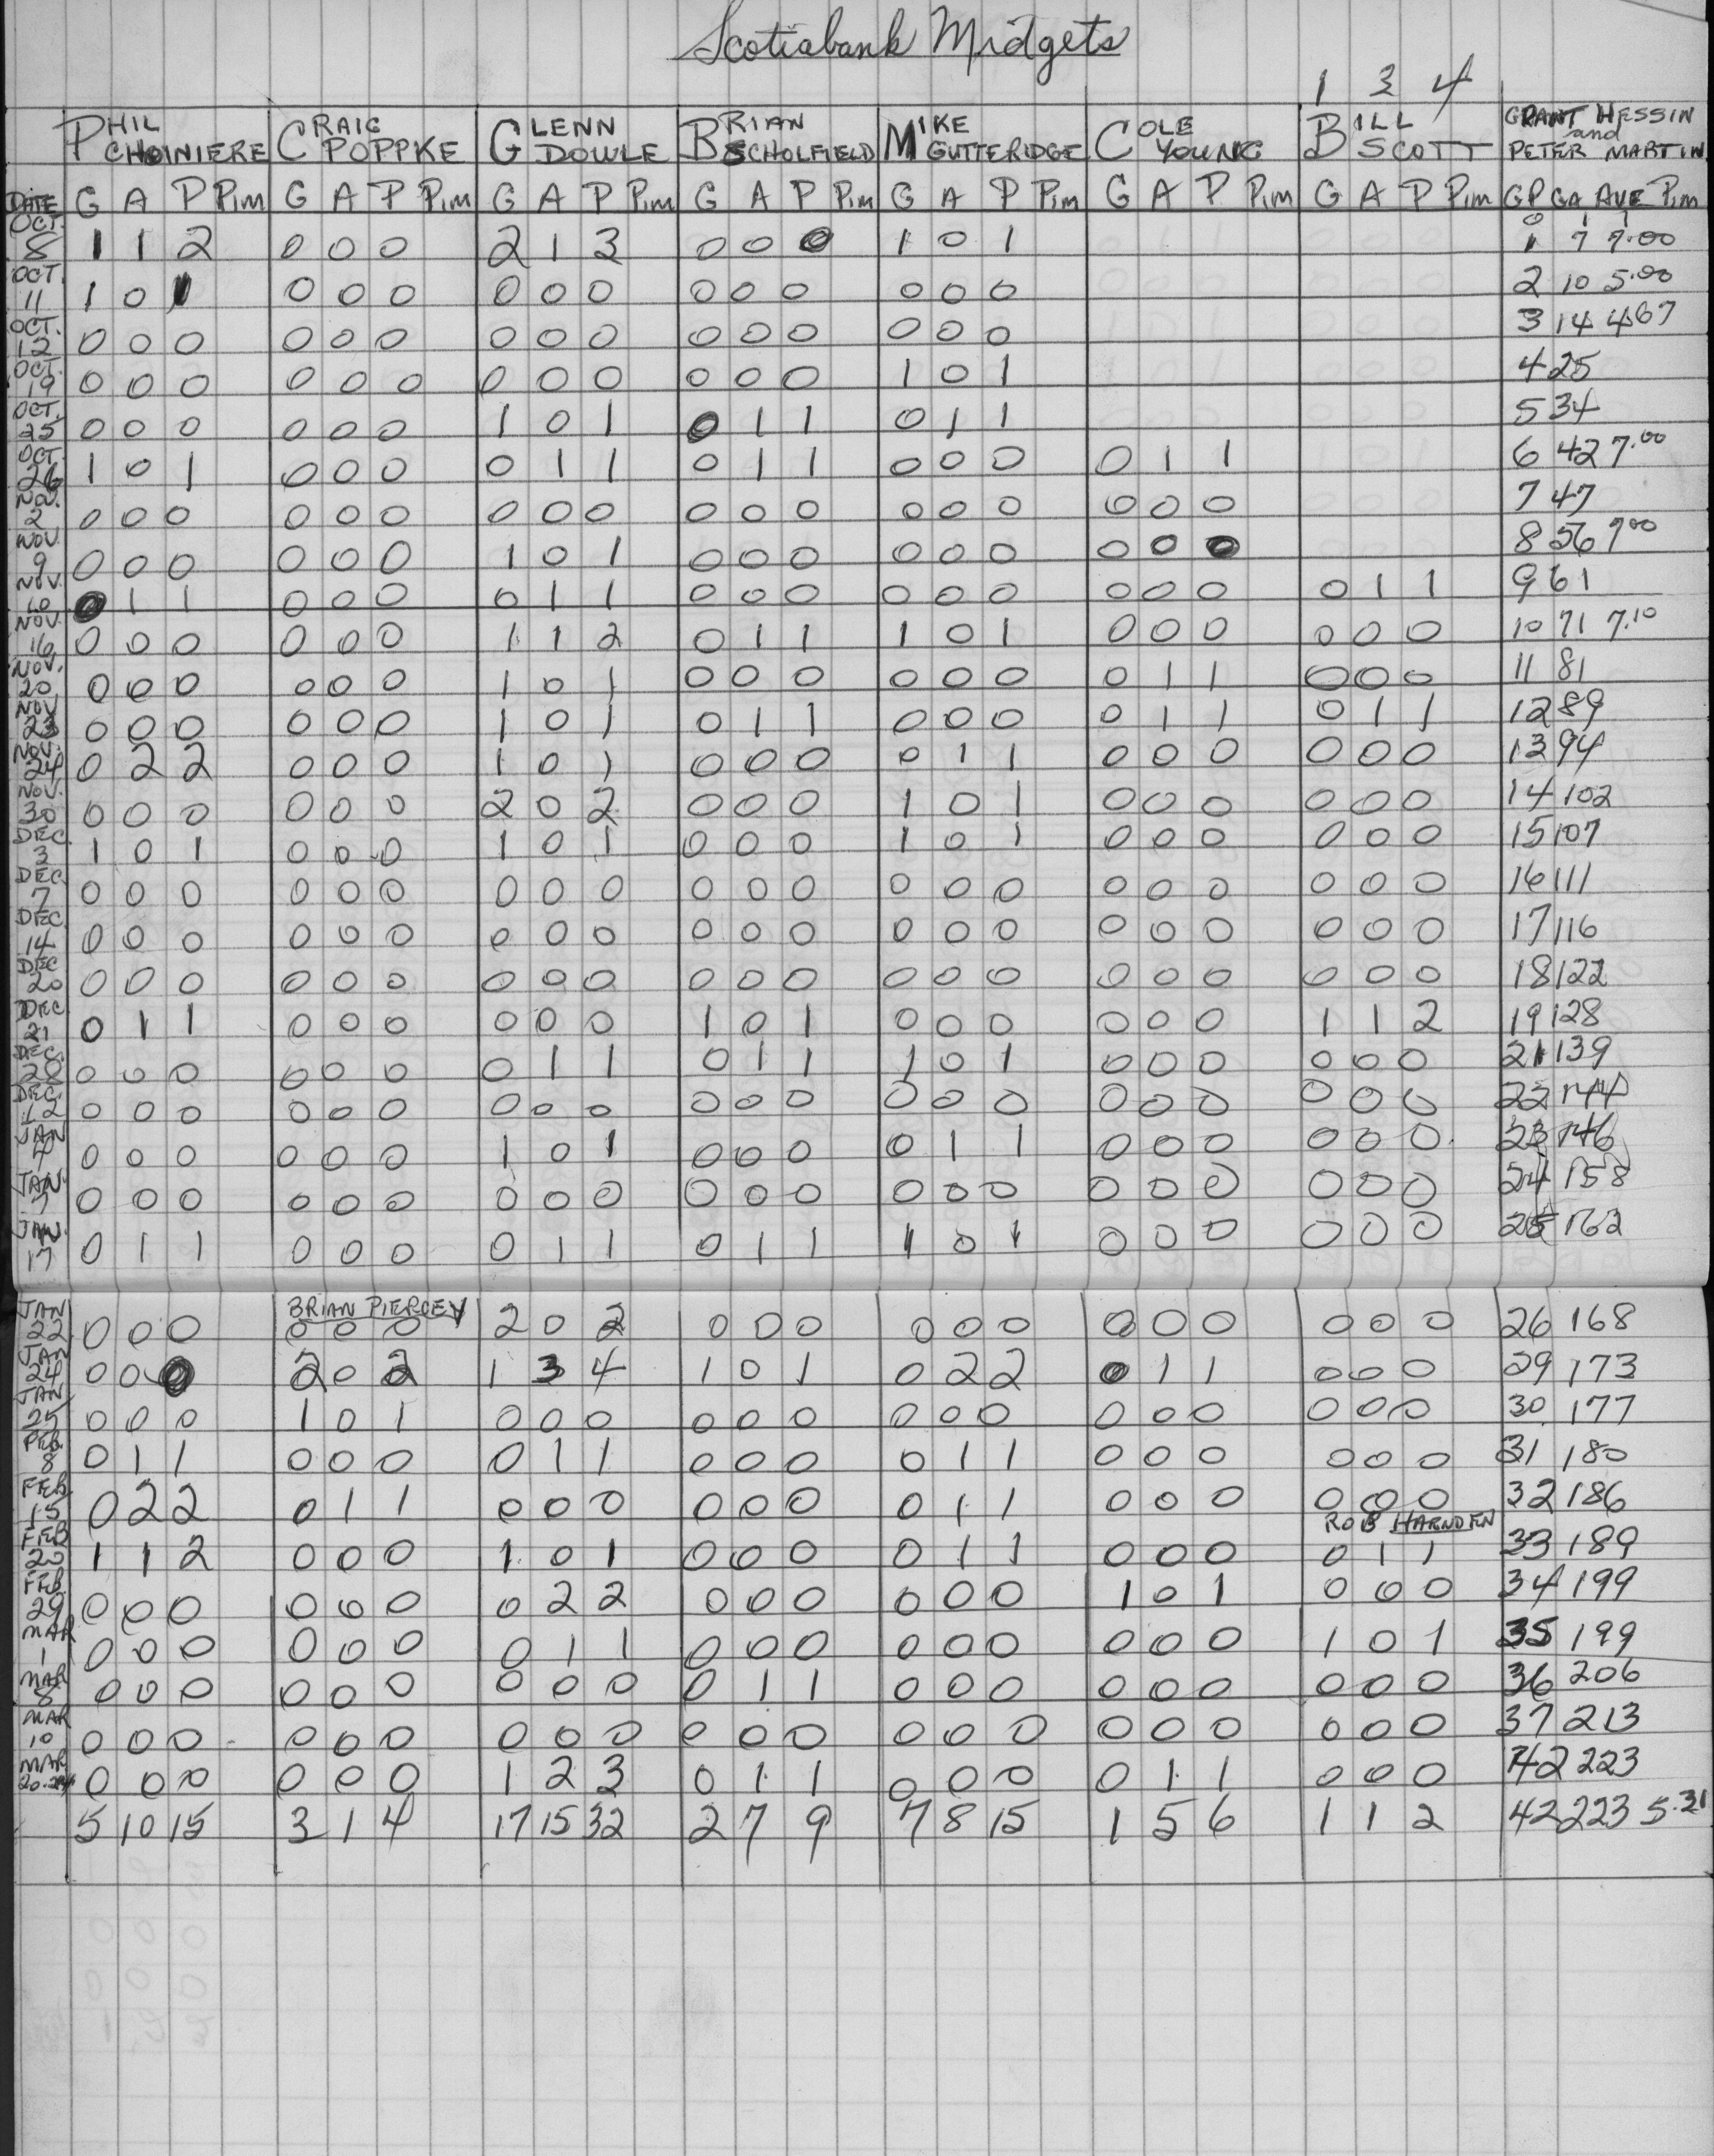 Scotiabank Midgets
1 3 4
PHIL CHOINIERE CRAIG POPPKE GLENN DOWLE BRIAN SCHOLFIELD MIKE GUTTERIDGE COLE YOUNG BILL SCOTT GRANT HESSIN and PETER MARTIN
DATE G A P Pim G A P Pim G A P Pim G A P Pim G A P Pim G A P Pim G A P Pim GP GA AVE Pim
OCT. 8 1 1 2 0 0 0 2 1 3 0 0 0 1 0 1 1 7 7.00
OCT. 11 1 0 1 0 0 0 0 0 0 0 0 0 0 0 0 2 10 5.00
OCT. 12 0 0 0 0 0 0 0 0 0 0 0 0 0 0 0 3 14 4.67
OCT. 19 0 0 0 0 0 0 0 0 0 0 0 0 1 0 1 4 25
OCT. 25 0 0 0 0 0 0 1 0 1 0 1 1 0 1 1 5 34
OCT. 26 1 0 1 0 0 0 0 1 1 0 1 1 0 0 0 0 1 1 6 42 7.00
NOV. 2 0 0 0 0 0 0 0 0 0 0 0 0 0 0 0 0 0 0 7 47
NOV. 9 0 0 0 0 0 0 1 0 1 0 0 0 0 0 0 0 0 0 8 56 7.00
NOV. 10 0 1 1 0 0 0 0 1 1 0 0 0 0 0 0 0 0 0 0 1 1 9 61
NOV. 16 0 0 0 0 0 0 1 1 2 0 1 1 1 0 1 0 0 0 0 0 0 10 71 7.10
NOV. 20 0 0 0 0 0 0 1 0 1 0 0 0 0 0 0 0 1 1 0 0 0 11 81
NOV 23 0 0 0 0 0 0 1 0 1 0 1 1 0 0 0 0 1 1 0 1 1 12 89
NOV. 24 0 2 2 0 0 0 1 0 1 0 0 0 0 1 1 0 0 0 0 0 0 13 94
NOV. 30 0 0 0 0 0 0 2 0 2 0 0 0 1 0 1 0 0 0 0 0 0 14 102
DEC 3 1 0 1 0 0 0 1 0 1 0 0 0 1 0 1 0 0 0 0 0 0 15 107
DEC 7 0 0 0 0 0 0 0 0 0 0 0 0 0 0 0 0 0 0 0 0 0 16 111
DEC 14 0 0 0 0 0 0 0 0 0 0 0 0 0 0 0 0 0 0 0 0 0 17 116
DEC 20 0 0 0 0 0 0 0 0 0 0 0 0 0 0 0 0 0 0 0 0 0 18 122
DEC 21 0 1 1 0 0 0 0 0 0 1 0 1 0 0 0 0 0 0 1 1 2 19 128
DEC. 28 0 0 0 0 0 0 0 1 1 0 1 1 1 0 1 0 0 0 0 0 0 21 139
DEC. 0 0 0 0 0 0 0 0 0 0 0 0 0 0 0 0 0 0 0 0 0 22 144
JAN 4 0 0 0 0 0 0 1 0 1 0 0 0 0 1 1 0 0 0 0 0 0 23 146
JAN. 0 0 0 0 0 0 0 0 0 0 0 0 0 0 0 0 0 0 0 0 0 24 158
JAN. 17 0 1 1 0 0 0 0 1 1 0 1 1 1 0 1 0 0 0 0 0 0 25 162
BRIAN PIERCEY
JAN 22 0 0 0 0 0 0 2 0 2 0 0 0 0 0 0 0 0 0 0 0 0 26 168
JAN 24 0 0 0 2 0 2 1 3 4 1 0 1 0 2 2 0 1 1 0 0 0 29 173
JAN 25 0 0 0 1 0 1 0 0 0 0 0 0 0 0 0 0 0 0 0 0 0 30 177
FEB. 8 0 1 1 0 0 0 0 1 1 0 0 0 0 1 1 0 0 0 0 0 0 31 180
FEB. 15 0 2 2 0 1 1 0 0 0 0 0 0 0 1 1 0 0 0 0 0 0 32 186
ROB HARNDEN
FEB 20 1 1 2 0 0 0 1 0 1 0 0 0 0 1 1 0 0 0 0 1 1 33 189
FEB. 29 0 0 0 0 0 0 0 2 2 0 0 0 0 0 0 1 0 1 0 0 0 34 199
MAR 1 0 0 0 0 0 0 0 1 1 0 0 0 0 0 0 0 0 0 1 0 1 35 199
MAR 8 0 0 0 0 0 0 0 0 0 0 1 1 0 0 0 0 0 0 0 0 0 36 206
MAR 10 0 0 0 0 0 0 0 0 0 0 0 0 0 0 0 0 0 0 0 0 0 37 213
MAR 20-24 0 0 0 0 0 0 1 2 3 0 1 1 0 0 0 0 1 1 0 0 0 42 223
5 10 15 3 1 4 17 15 32 2 7 9 7 8 15 1 5 6 1 1 2 42 223 5.31